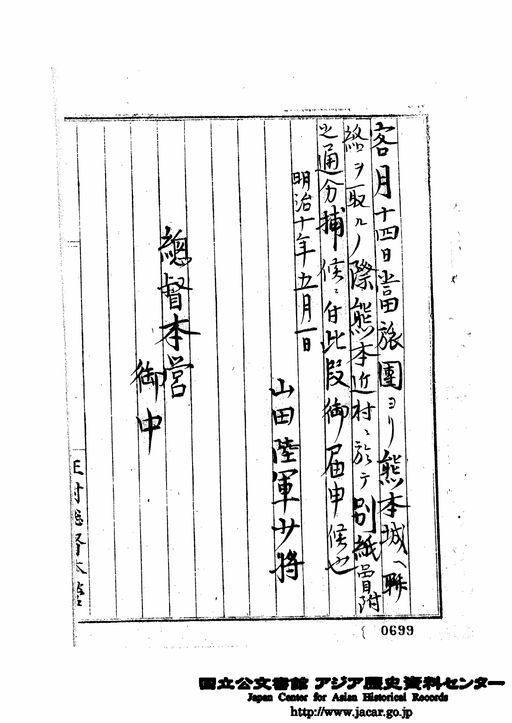 客月十四日當旅團ヨリ熊本城ヘ聯
絡ヲ取ルノ際熊本近村ニ於テ別紙員附
之通分捕候ニ付此段御届申候也
明治十年五月一日
山田陸軍少将
總督本営
御中
征討総督本営
0699
国立公文書館 アジア歴史資料センター
Japan Center for Asian Historical Records
http://www.jacar.go.jp